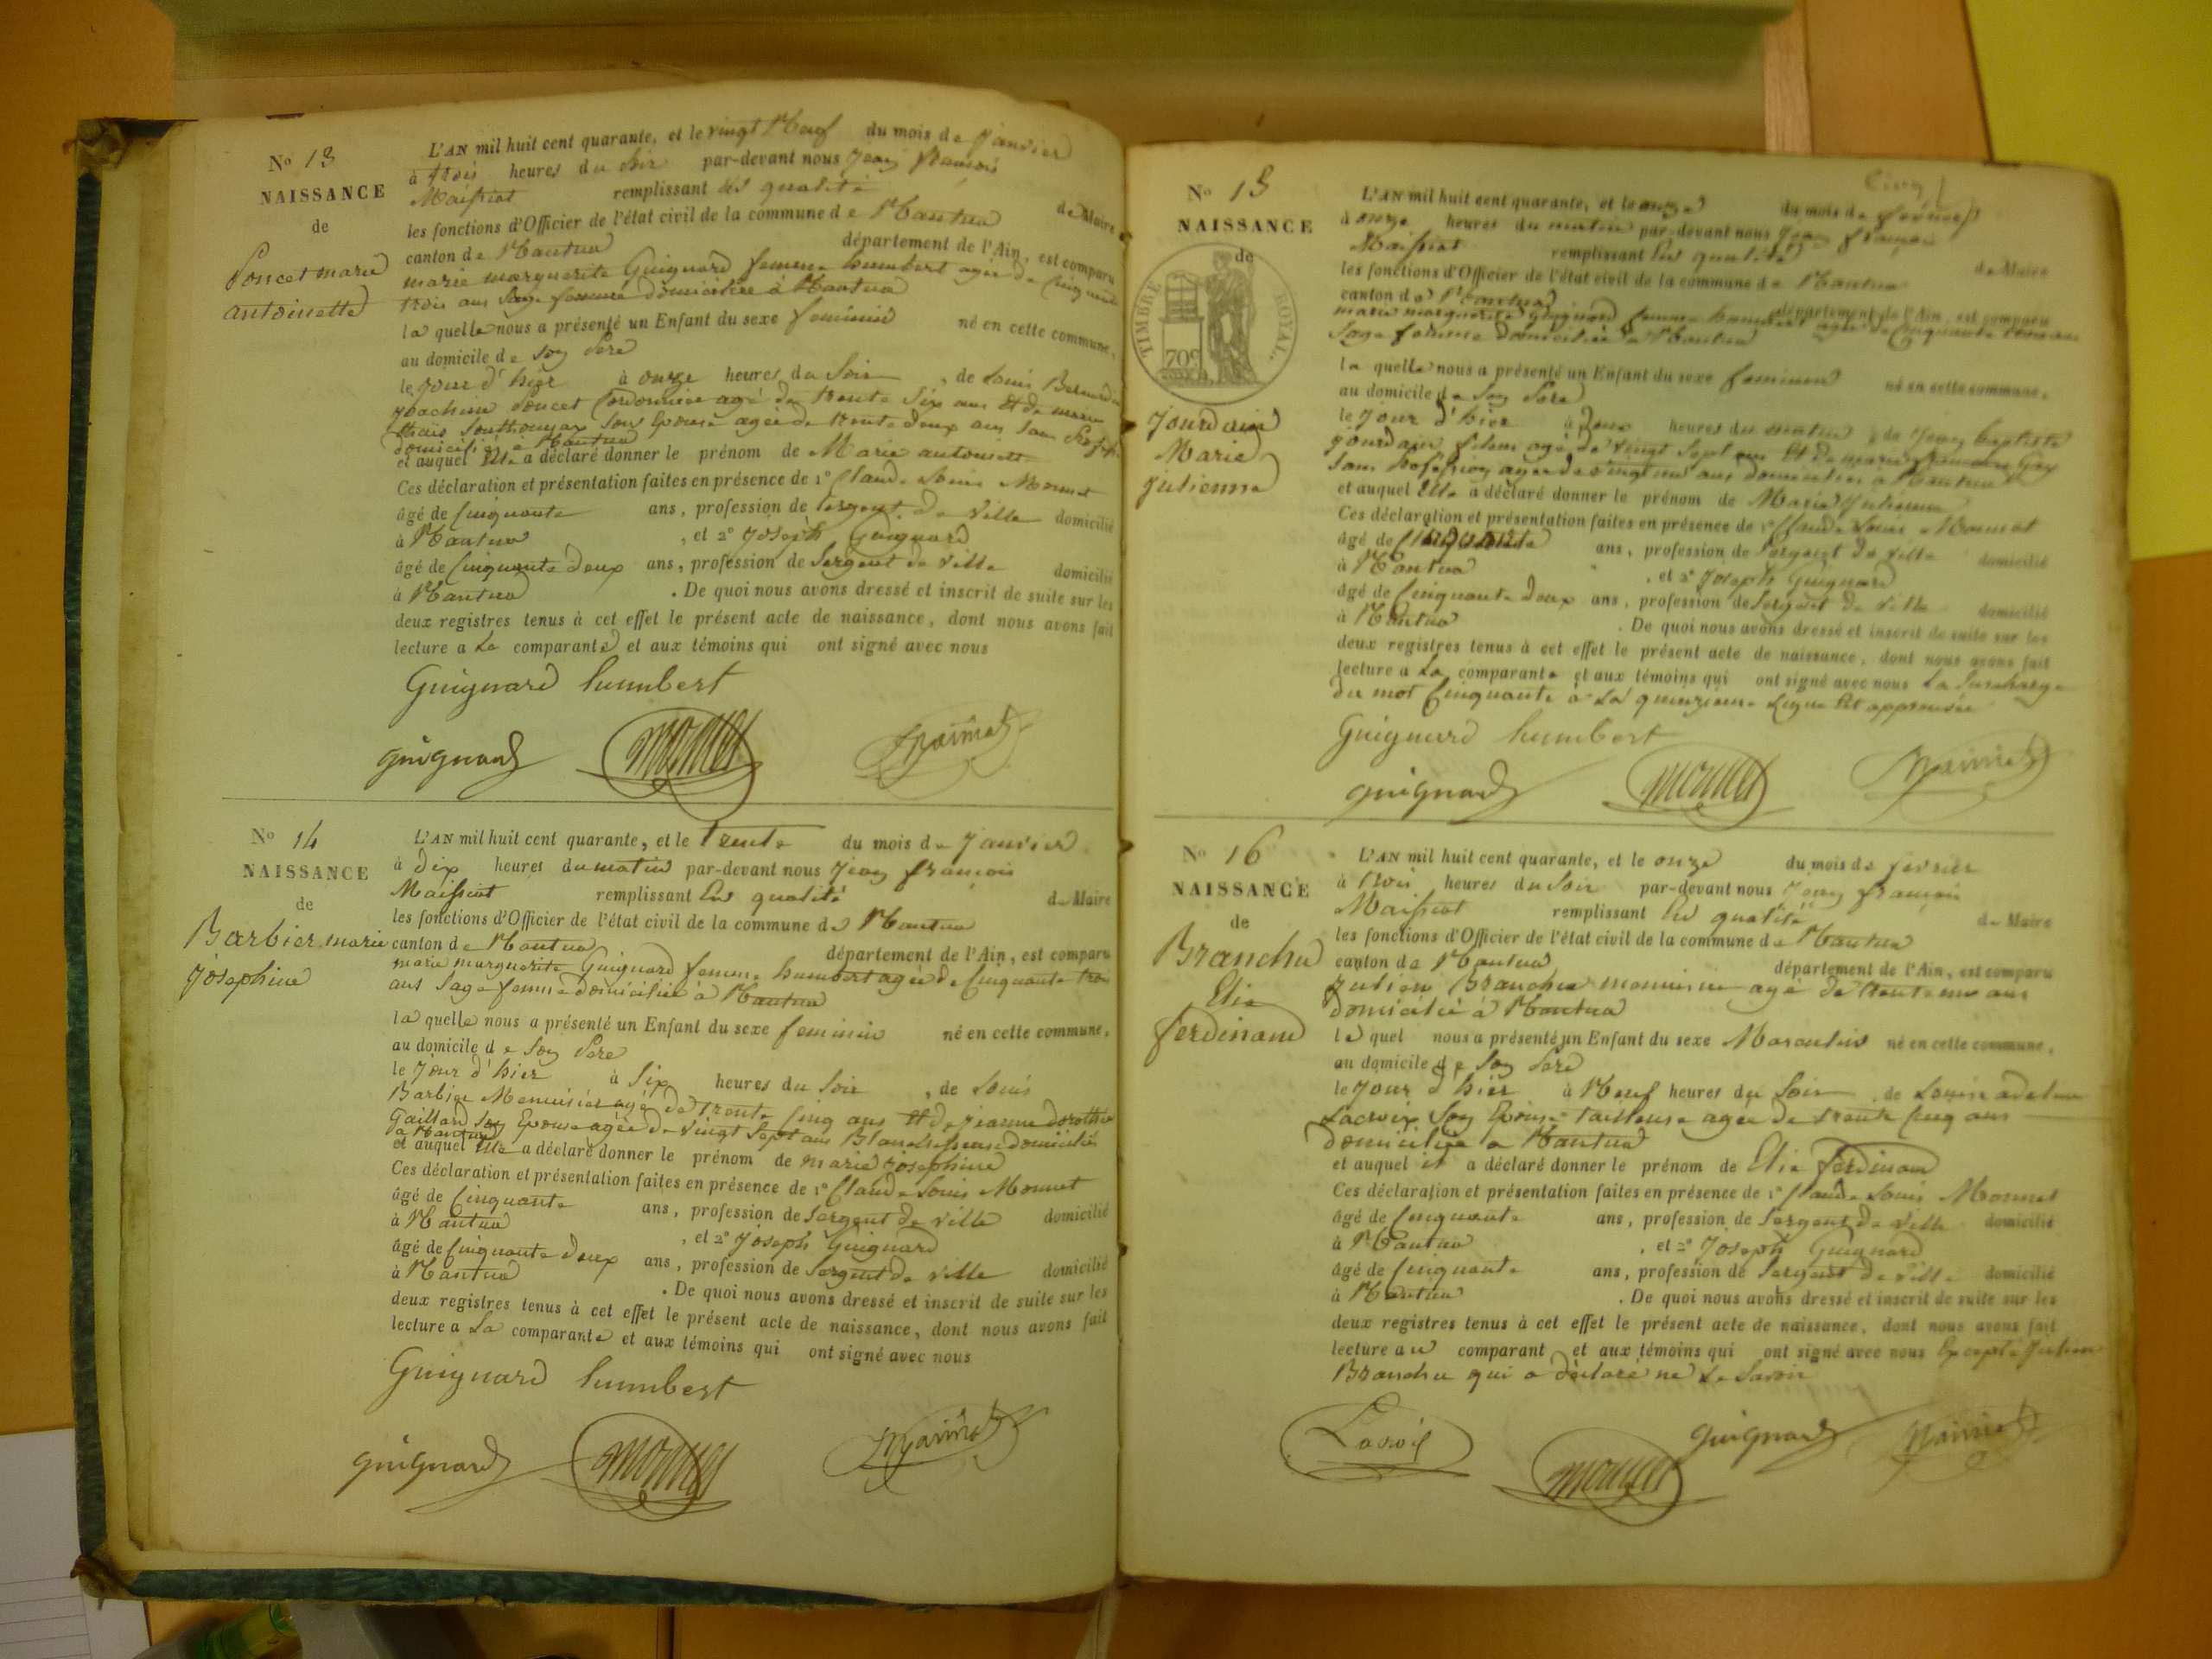 Nº 13
NAISSANCE
de
Poncet marie
antoinette
L'AN mil huit cent quarante, et le vingt Neuf du mois de Janvier
à trois heures du soir par-devant nous Jean françois
Maissiat remplissant en qualité de Maire
les fonctions d'Officier de l'état civil de la commune de Nantua
canton de Nantua département de l'Ain, est comparu
marie marguerite Guignard femme humbert agée de Cinquante
trois ans Sage femme domiciliée à Nantua
la quelle nous a présenté un Enfant du sexe feminin né en cette commune,
au domicile de son Pere
le Jour d'hier à onze heures du Soir, de Louis Bernardin
Joachim Poncet Cordonnier agé de trente Six ans Et de marie
son Epouse agée de trente deux ans sans
domicilié à Nantua
et auquel Elle a déclaré donner le prénom de Marie antoinette
Ces déclaration et présentation faites en présence de 1º Claude Louis Monnet
âgé de Cinquante ans, profession de sergent de Ville domicilié
à Nantua, et 2º Joseph Guignard
âgé de Cinquante deux ans, profession de Sergent de Ville domicilié
à Nantua. De quoi nous avons dressé et inscrit de suite sur les
deux registres tenus à cet effet le présent acte de naissance, dont nous avons fait
lecture a La comparante et aux témoins qui ont signé avec nous
Guignard humbert
guignard Monnet
Nº 14
NAISSANCE
de
Barbier marie
Josephine
L'AN mil huit cent quarante, et le Trente du mois de Janvier
à Dix heures du matin par-devant nous Jean françois
Maissiat remplissant En qualité de Maire
les fonctions d'Officier de l'état civil de la commune de Nantua
canton de Nantua département de l'Ain, est comparu
marie marguerite Guignard femme humbert agée de Cinquante trois
ans Sage femme domiciliée à Nantua
la quelle nous a présenté un Enfant du sexe feminin né en cette commune,
au domicile de Son Pere
le Jour d'hier à Six heures du Soir, de Louis
Barbier Menuisier agé de trente Cinq ans Et de jeanne dorothée
Gaillard son Epouse agée de vingt Sept ans Blanchisseuse domiciliés
à Nantua
et auquel Elle a déclaré donner le prénom de marie josephine
Ces déclaration et présentation faites en présence de 1º Claude Louis Monnet
âgé de Cinquante ans, profession de Sergent de ville domicilié
à Nantua, et 2º Joseph Guignard
âgé de Cinquante deux ans, profession de Sergent de ville domicilié
à Nantua. De quoi nous avons dressé et inscrit de suite sur les
deux registres tenus à cet effet le présent acte de naissance, dont nous avons fait
lecture a La comparante et aux témoins qui ont signé avec nous
Guignard humbert
guignard Monnet
Cinq
Nº 15
NAISSANCE
de
TIMBRE ROYAL
70c
Jourdain
Marie
julienne
L'AN mil huit cent quarante, et le onze du mois de fevrier
à onze heures du matin par-devant nous Jean françois
Maissiat remplissant En qualité de Maire
les fonctions d'Officier de l'état civil de la commune de Nantua
canton de Nantua département de l'Ain, est comparu
marie marguerite Guignard femme humbert agée de Cinquante trois ans
Sage femme domiciliée à Nantua
la quelle nous a présenté un Enfant du sexe feminin né en cette commune,
au domicile de Son Pere
le Jour d'hier à Deux heures du matin, de Jean baptiste
jourdain agé de vingt Sept ans Et de marie
sans Profession agée de vingt un ans domiciliés à Nantua
et auquel Elle a déclaré donner le prénom de Marie Julienne
Ces déclaration et présentation faites en présence de 1º Claude Louis Monnet
âgé de Cinquante ans, profession de Sergent de ville domicilié
à Nantua, et 2º Joseph Guignard
âgé de Cinquante deux ans, profession de Sergent de ville domicilié
à Nantua. De quoi nous avons dressé et inscrit de suite sur les
deux registres tenus à cet effet le présent acte de naissance, dont nous avons fait
lecture a La comparante et aux témoins qui ont signé avec nous La Surcharge
du mot Cinquante à La quinzieme Ligne Est approuvée
Guignard humbert
guignard Monnet
Nº 16
NAISSANCE
de
Branchu
Elie
ferdinand
L'AN mil huit cent quarante, et le onze du mois de fevrier
à trois heures du Soir par-devant nous Jean françois
Maissiat remplissant En qualité de Maire
les fonctions d'Officier de l'état civil de la commune de Nantua
canton de Nantua département de l'Ain, est comparu
Julien Branchu agé de trente un ans
Domicilié à Nantua
le quel nous a présenté un Enfant du sexe Masculin né en cette commune,
au domicile de Son Pere
le Jour d'hier à Neuf heures du Soir, de
Lacroix Son Epouse tailleuse agée de trente Cinq ans
domiciliée à Nantua
et auquel il a déclaré donner le prénom de Elie ferdinand
Ces déclaration et présentation faites en présence de 1º Claude Louis Monnet
âgé de Cinquante ans, profession de Sergent de Ville domicilié
à Nantua, et 2º Joseph Guignard
âgé de Cinquante ans, profession de Sergent de Ville domicilié
à Nantua. De quoi nous avons dressé et inscrit de suite sur les
deux registres tenus à cet effet le présent acte de naissance, dont nous avons fait
lecture au comparant et aux témoins qui ont signé avec nous Excepté Julien
Branchu qui a déclaré ne Le Savoir
guignard
Monnet